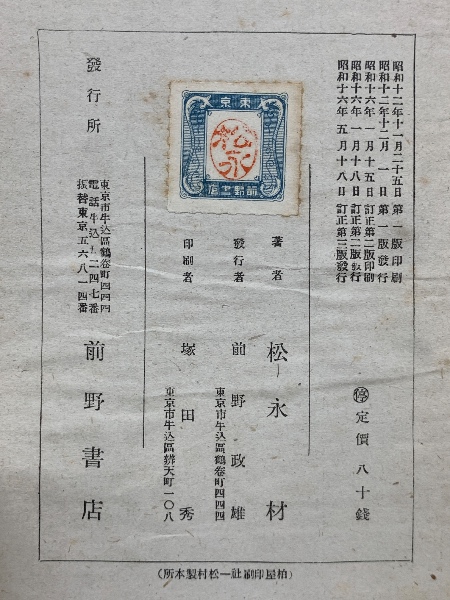 昭和十二年十一月二十五日第一版印刷
昭和十二年十二月一日第一版發行
昭和十六年一月十五日訂正第二版印刷
昭和十六年一月十八日訂正第二版發行
昭和十六年五月十八日訂正第三版發行
停定價八十錢
東京
松永
前野書店
著者 松永材
發行者 前野政雄
東京市牛込區鶴卷町四四四
印刷者 塚田秀
東京市牛込區辨天町一〇八
發行所
東京市牛込區鶴卷町四四四
振替東京五六八一四番
前野書店
(柏屋印刷社―松村製本所)